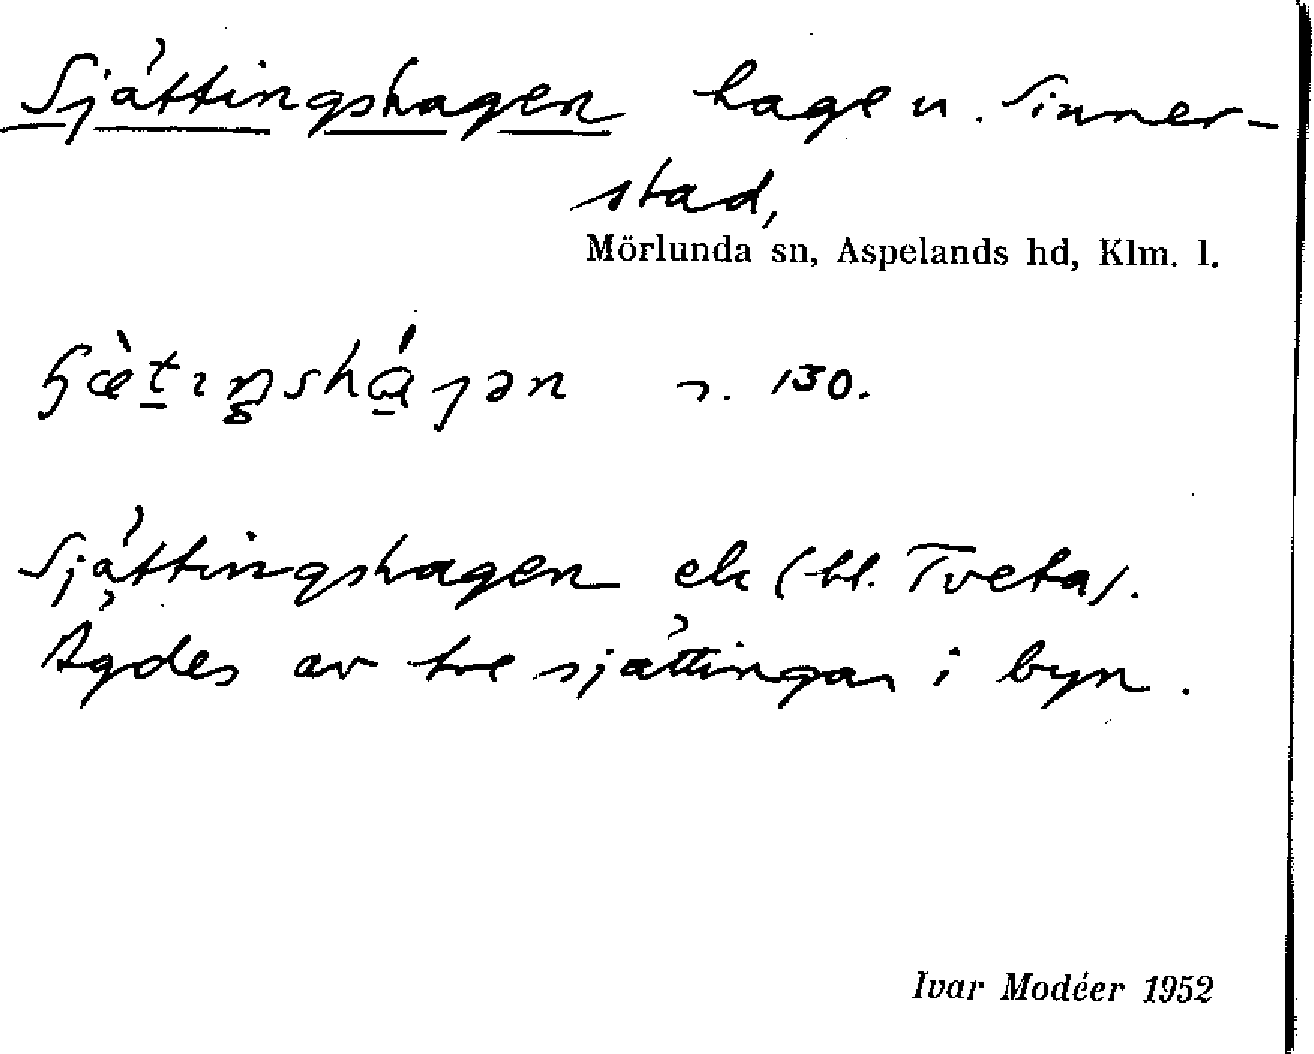 Sjättingshagen hage u. Sinner-
stad,
Mörlunda sn, Aspelands hd, Klm. l.
ɧæ̀t̲ıŋshɑ̲́ɣən 130.
Sjättingshagen ek (bl. Tveta).
Ägdes av tre sjättingar i byn.
Ivar Modéer 1952